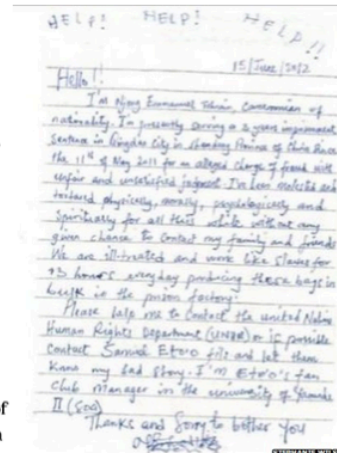 HELP! HELP! HELP!!
15/June/2012
Hello!!
I'm Njong Emmanuel Tohnain, Cameroonian of
nationality. I'm presently serving a 3 years imprisonment
sentence in Qingdao City in Shandong Province of China since
the 11th of May 2011 for an alleged charge of fraud with
unfair and unsatisfied judgment. I've been molested and
tortured physically, morally, psychologically and
spiritually for all this while without any
given chance to contact my family and friends
We are ill-treated and work like slaves for
13 hours everyday producing these bags in
bulk in the prison factory.
Please help me to contact the united Nations
Human Rights Department (UNHR) or if possible
contact Samuel Eto'o fils and let them
know my sad story. I'm Eto'o's fan
club manager in the university of Yaounde
II (Soa)
Thanks and Sorry to bother you
of